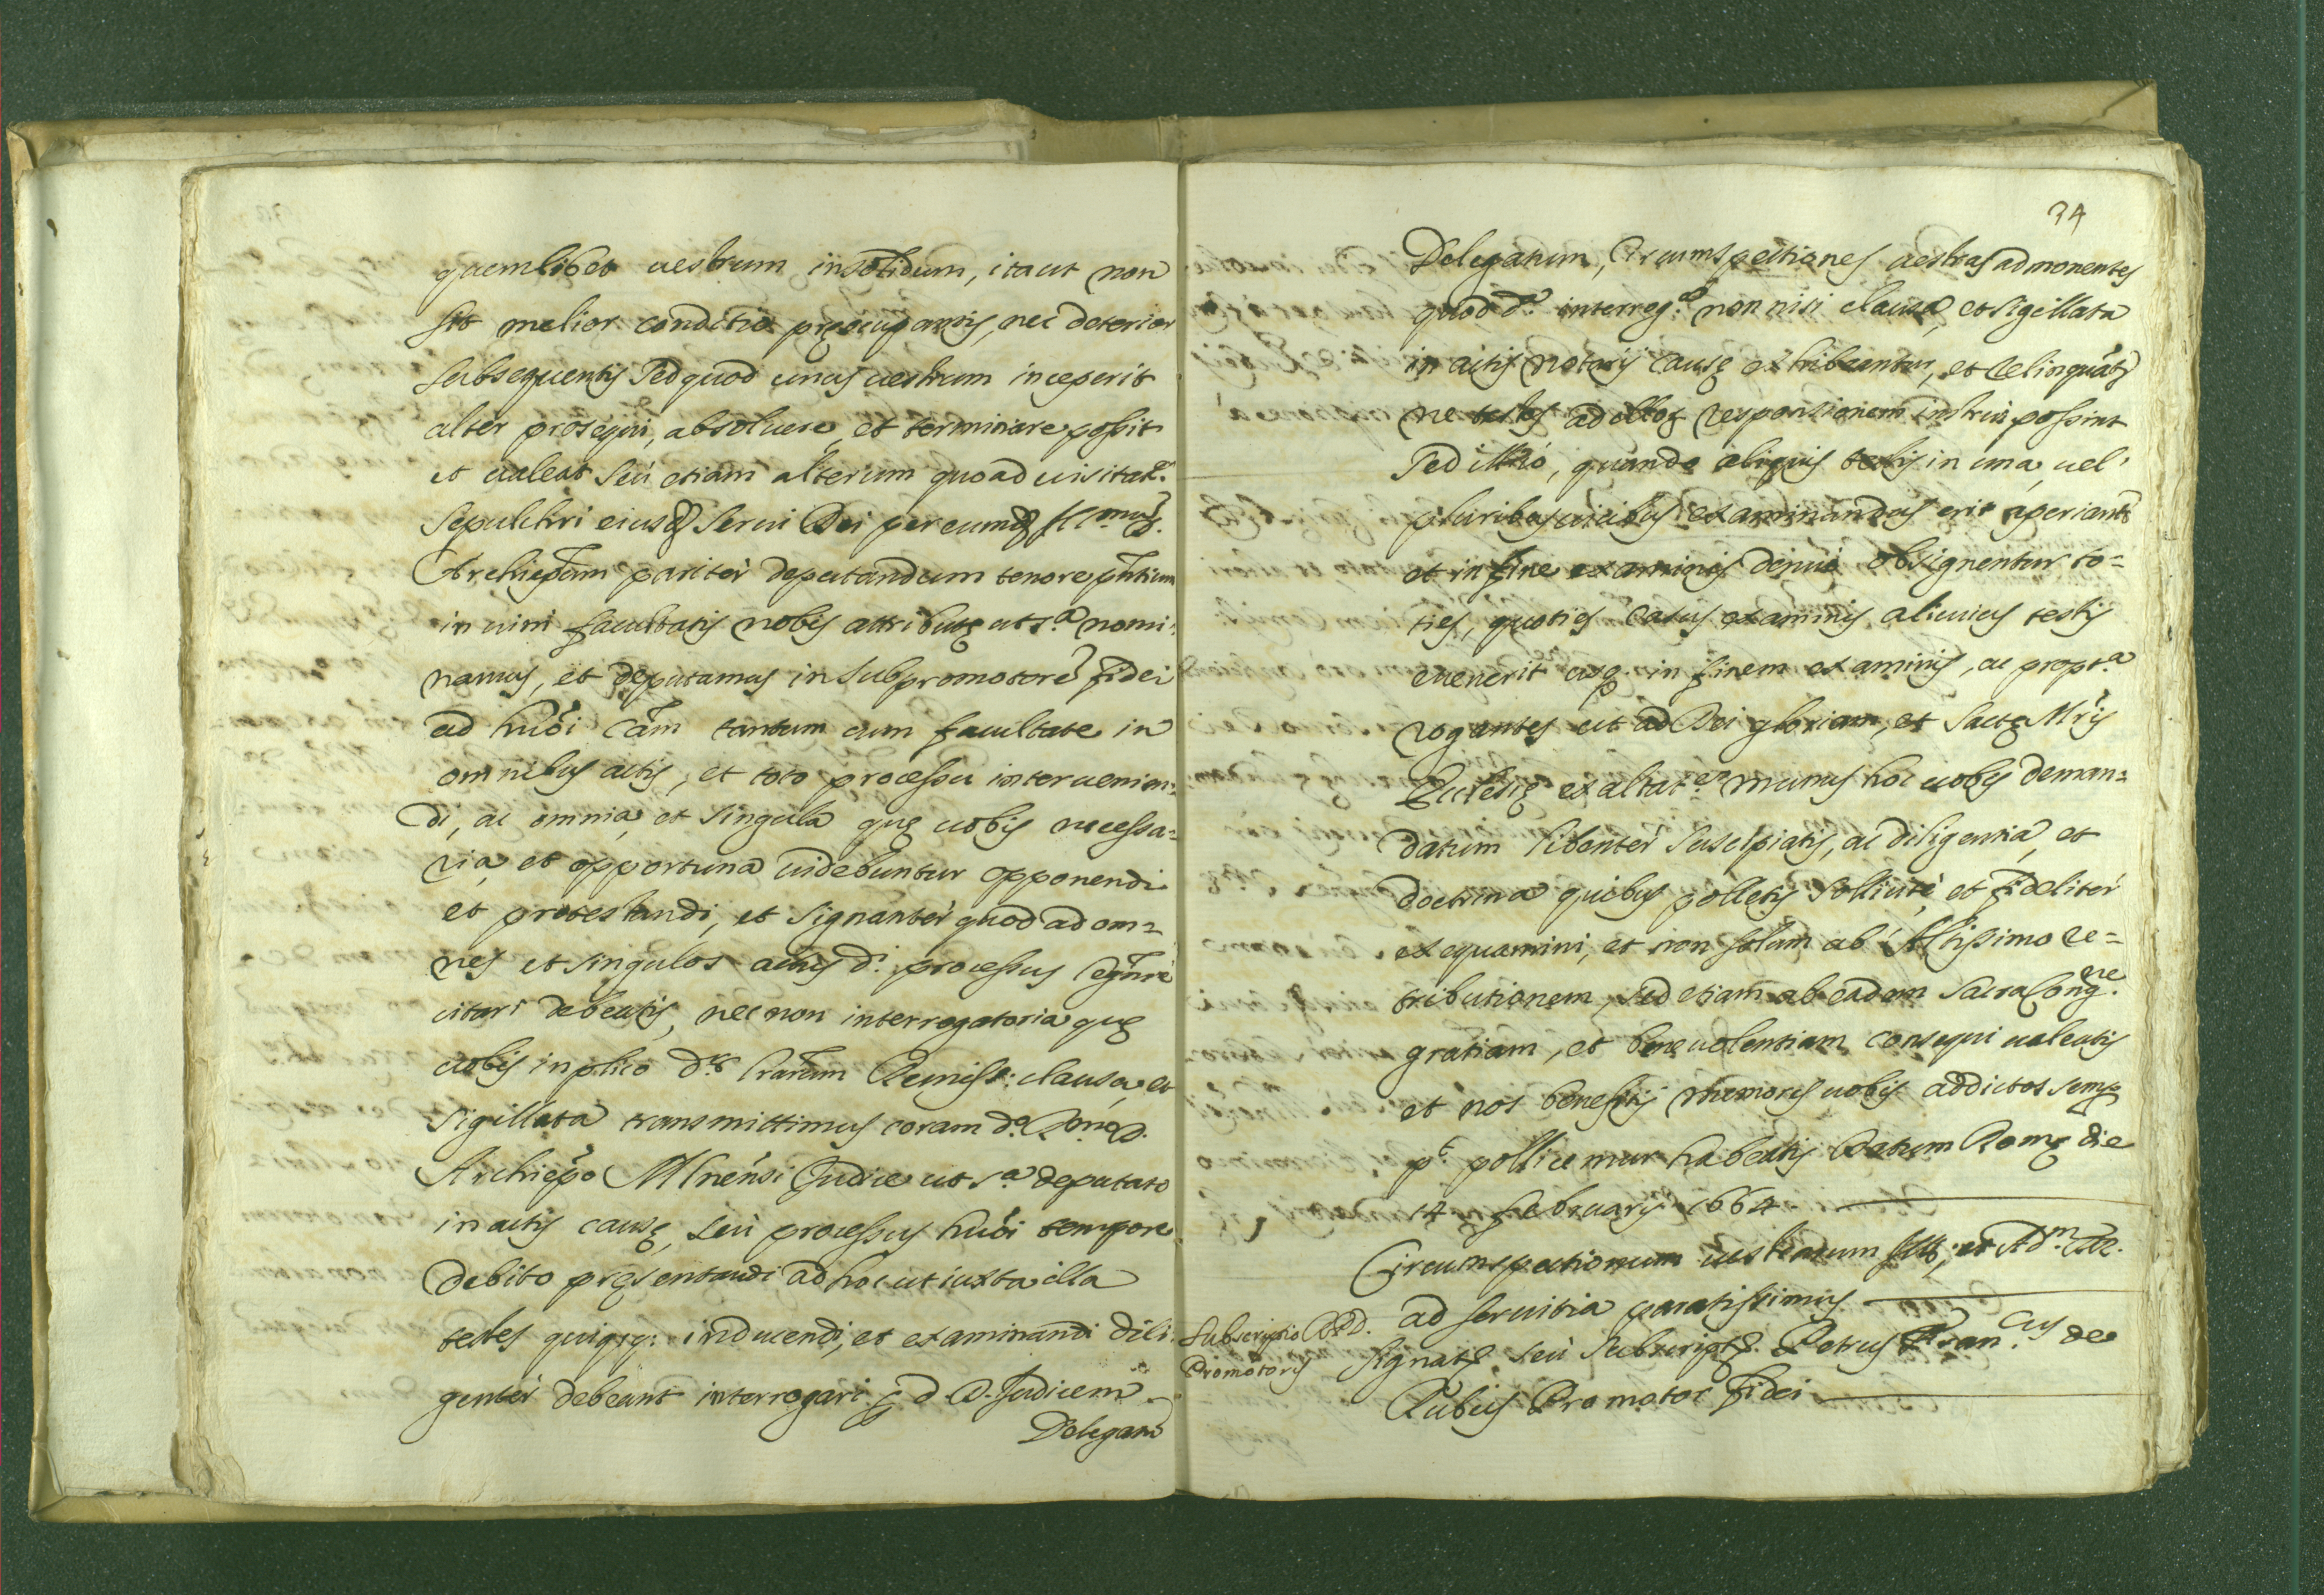 quemlibet uestrum insolidum, itaut non
sit melior conditio pręocupantis, nec deterior
subsequentis sed quod unus uestrum inceperit
alter prosequi, absoluere, et terminare possit
et ualeat seù etiam alterum quoad uisitat.
Sepulchri eiusd Serui Dei per eumd
Archiepum paritèr deputandum tenore pntium
in uim facultatis nobis attributę ut s.a nomi-
namus, et deputamus in subpromotore fidei
ad huõi cãm tantum cum facultate in
omnibus actis, et toto processu interuenien-
di, ac omnia, et singula quę uobis necessa-
ria, et opportuna uidebuntur opponendi
et protestandi, et signantèr quod ad om=
nes et singulos actus d.i processus
citari debeatis, nec non interrogatoria quę
uobis in plico clausa, et
sigillata transmittimus coram d.o
Archiepo Judice ut s.a deputato
in actis causę, seù processus huõi tempore
debito pręsentandi ad hoc ut iuxta illa
testes inducendi, et examinandi dili-
gentèr debeant interrogari d. D. Judicem
Delegam
34
Delegatum, Circumspectiones uestras admonentes
quod d.a interreg. non nisi clausa, et sigillata
in actis notarij causę exhibeantur, et relinquãt
ne testes ad responsionem instrui possint
sed quando aliquis testis in una, uel
pluribus uicibus examinandus erit aperiant
et in fine examinis obsignentur to=
ties, quoties casus examinis alicuius testis
euenerit usq. in finem examinis, ac propt.a
rogantes ut ad Dei gloriam, et Sactę Mris
Ecclesię exaltat. munus hoc uobis deman=
datum libentèr suscipiatis, ac diligentia, et
doctrina quibus polletis sollicitè, et fidelitèr
exequamini, et non solum ab Altissimo re=
tributionem, sed etiam ab eadem Sacra Cong.ne
gratiam, et beneuolentiam consequi ualeatis
et nos beneficij memores uobis addictos semp
pollicemur habeatis Datum Romę die
14 februarij 1664
Circumspectionum uestrarum
ad seruitia paratissimus
Subscriptio
Promotoris
Signat. seù subscript. Petrus Fran.cus de
Rubeis Promotor fidei